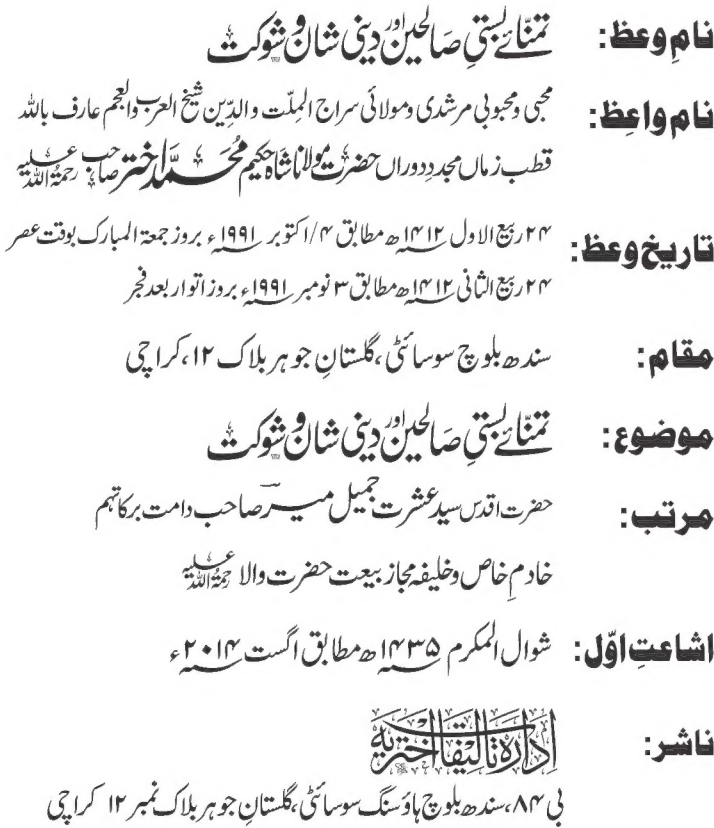 نامِ وعظ: تمنّائے بستیٔ صالحین اور دینی شان و شوکت
نام واعظ: محبی ومحبوبی مرشدی ومولائی سراج المِلّت والدِّین شیخ العرب والعجم عارف باللہ
قطب زماں مجددِ دوراں حضرت مولانا شاہ حکیم محمد اختر صاحب رحمۃ اللہ علیہ
تاریخ وعظ: ۲۴ ربیع الاول ۱۴۱۲ھ مطابق ۴/اکتوبر ۱۹۹۱ء بروز جمعۃ المبارک بوقت عصر
۲۴ ربیع الثانی ۱۴۱۲ھ مطابق ۳ نومبر ۱۹۹۱ء بروز اتوار بعد فجر
مقام: سندھ بلوچ سوسائٹی، گلستانِ جوہر بلاک ۱۲، کراچی
موضوع: تمنّائے بستیٔ صالحین اور دینی شان و شوکت
مرتب: حضرت اقدس سید عشرت جمیل میر صاحب دامت برکاتہم
خادمِ خاص وخلیفہ مجاز بیعت حضرت والا رحمۃ اللہ علیہ
اشاعتِ اوّل: شوال المکرم ۱۴۳۵ھ مطابق اگست ۲۰۱۴ء
ناشر: اِدَارَہ تَالِیفَات اَختَرِیَہ
بی ۸۴، سندھ بلوچ ہاؤسنگ سوسائٹی، گلستانِ جوہر بلاک نمبر ۱۲ کراچی